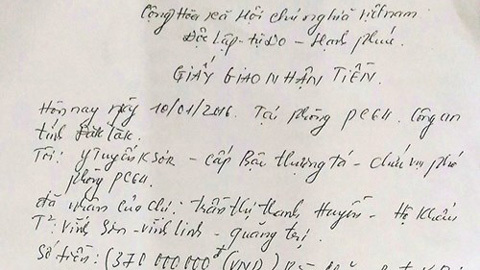 Cộng Hòa xã Hội chủ nghĩa việt nam
Độc lập - tự do - Hạnh phúc.
GIẤY GIAO NHẬN TIỀN.
Hôm nay ngày 10/01/2016. Tại phòng PC64. Công an
tỉnh Đăk Lăk.
Tôi: Y Tuyến KSơr - cấp Bậc thượng tá - chức vụ phó
phòng PC64.
đã nhận của chị: Trần thị thanh Huyền - Hộ khẩu
T²: Vĩnh Sơn - vĩnh linh - quảng trị.
Số tiền: (370 000 000đ (VND)